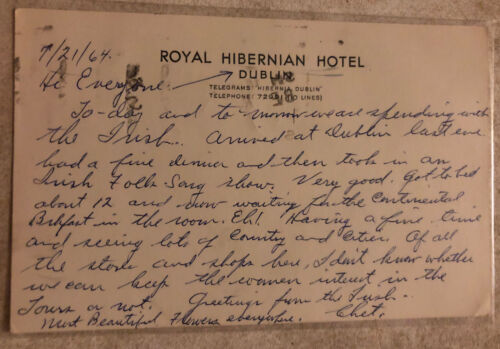 7/21/64.
ROYAL HIBERNIAN HOTEL
DUBLIN
TELEGRAMS "HIBERNIA DUBLIN"
TELEPHONE: 7295 (10 LINES)
Hi Everyone:
To-day and to-morrow we are spending with
the Irish. Arrived at Dublin last eve.
had a fine dinner and then took in an
Irish Folk Song show. Very good. Got to bed
about 12 and now waiting for the Continental
Brkfast in the room. Eh! Having a fine time
and seeing lots of Country and Cities. Of all
the stores and shops here, I don't know whether
we can keep the women interest in the
Tours or not. Greetings from the Irish.
Most Beautiful Flowers everywhere. Chet.